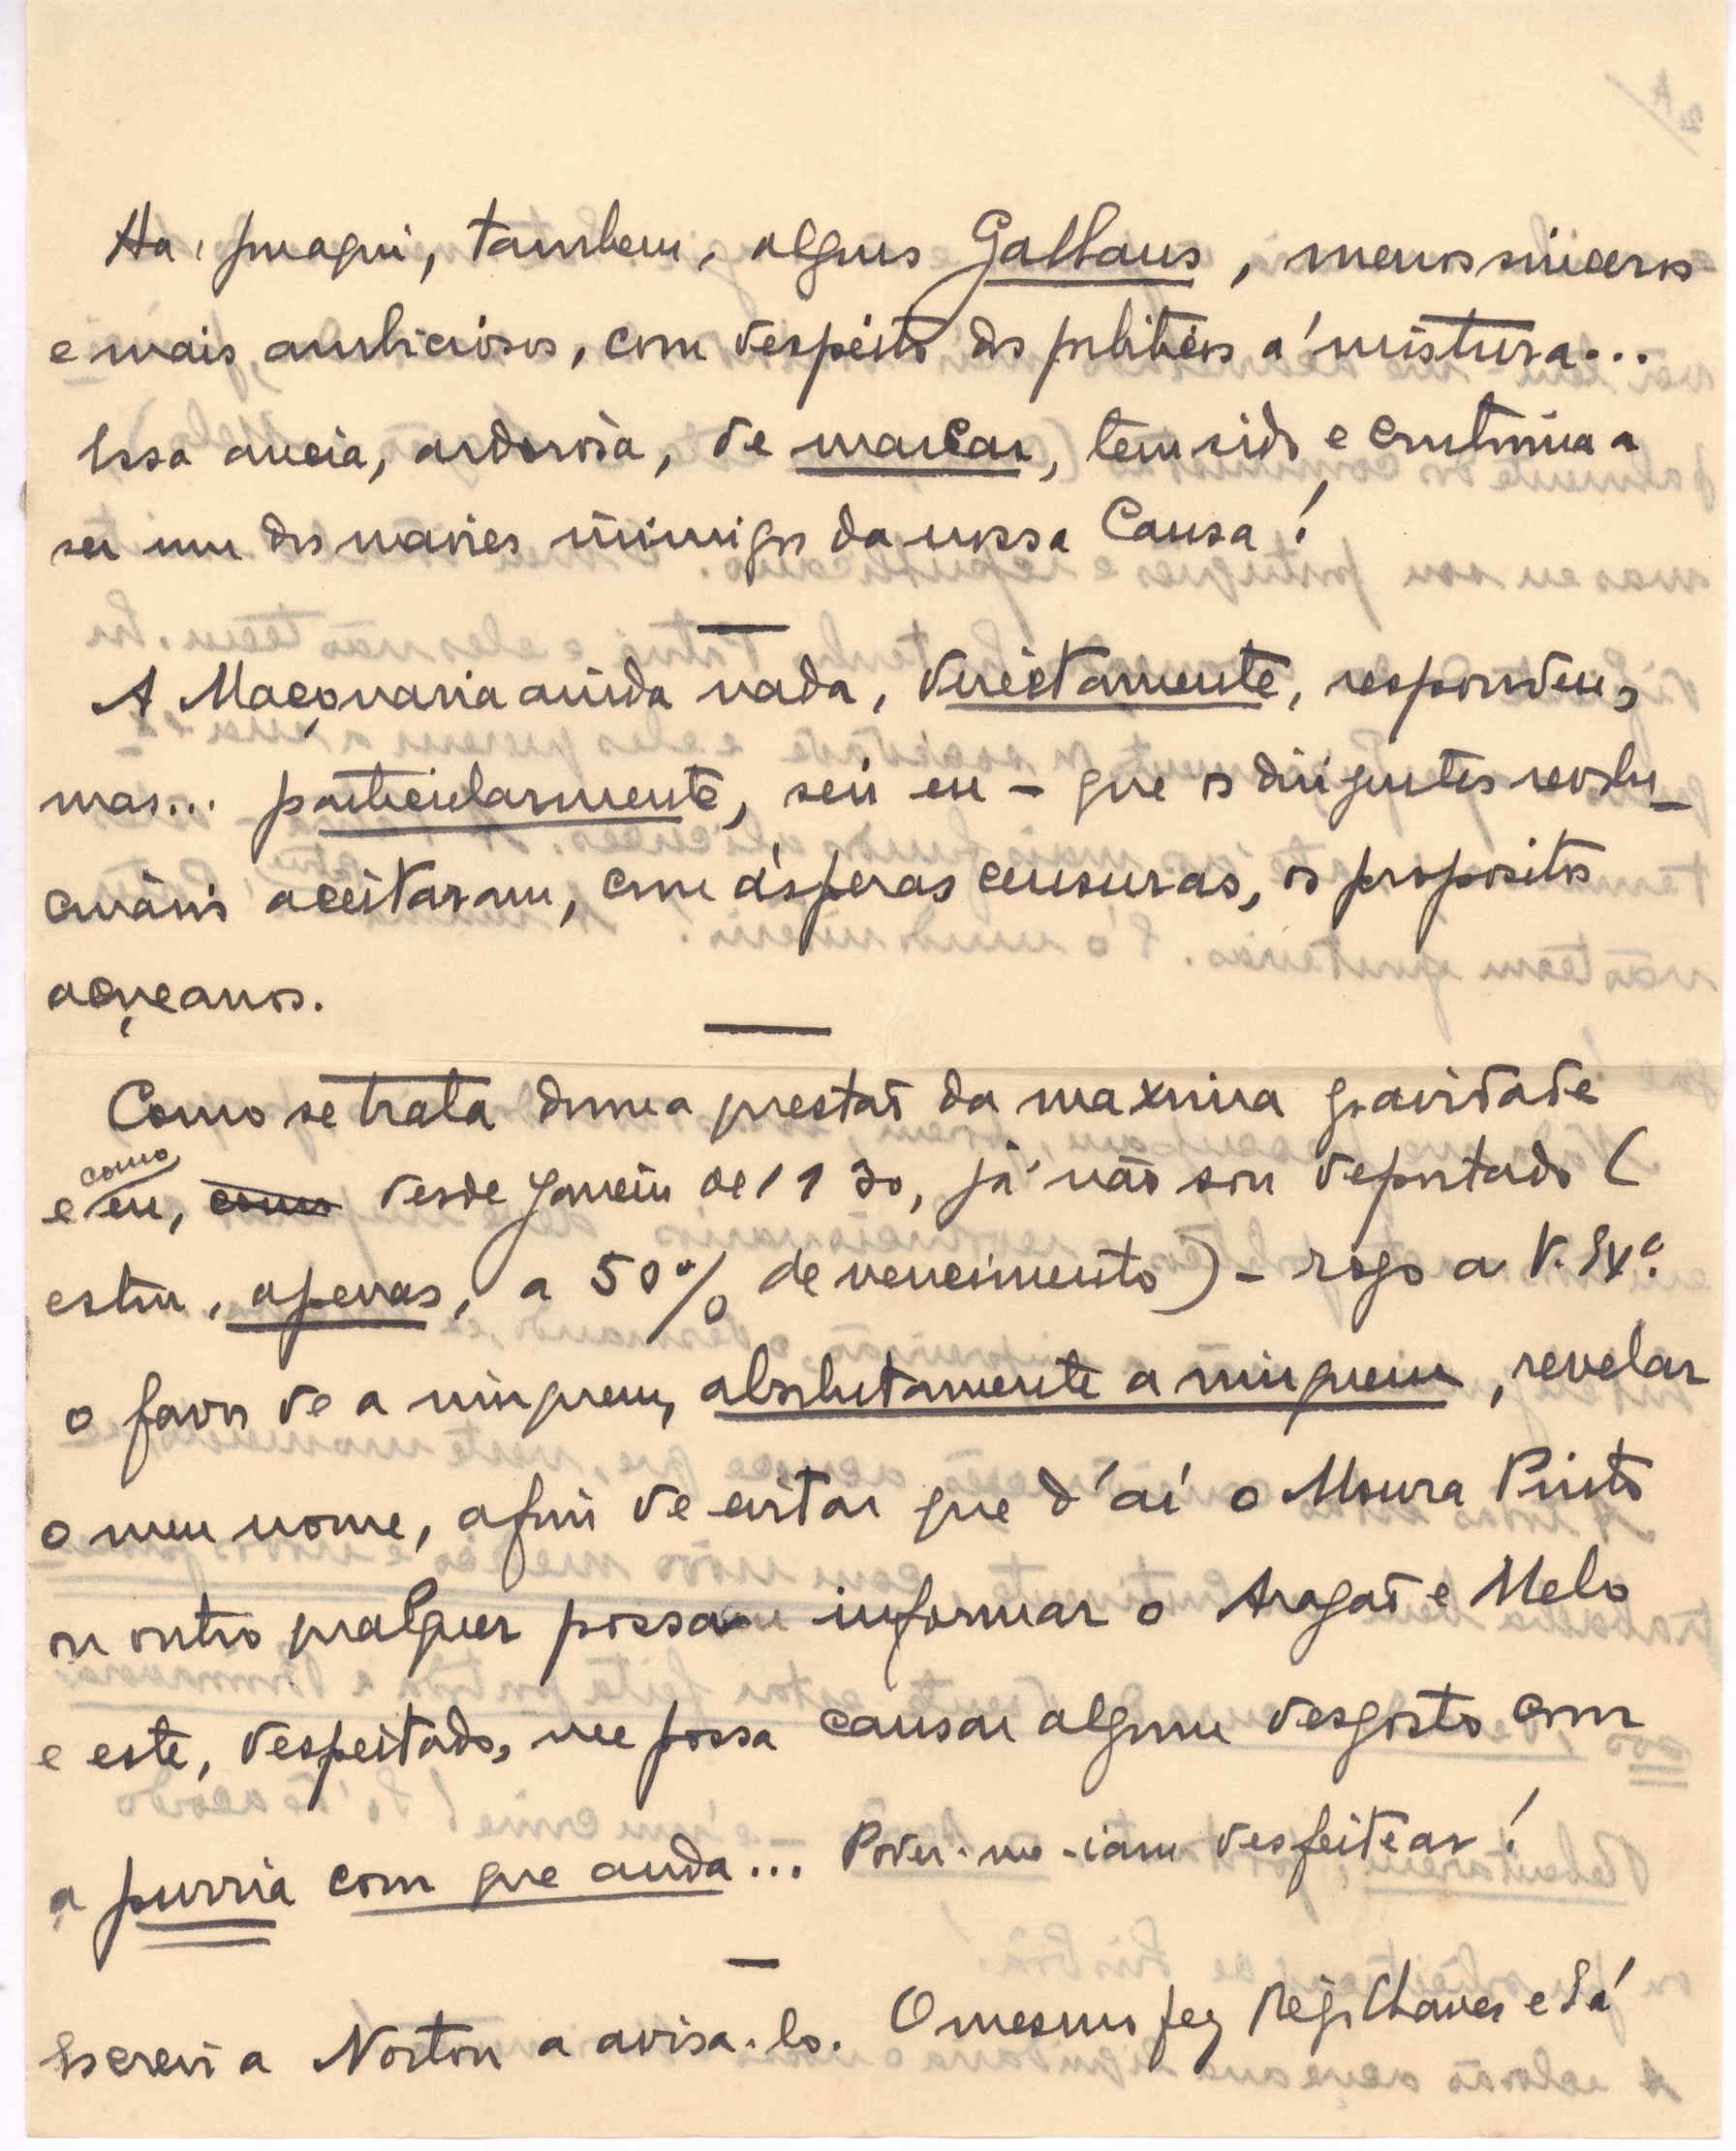 Ha, puraqui, tambem, alguns Gallaus, menos sinceros
e mais ambiciosos, com despeito dos politicos á mistura...
Essa ancia, ardorosa, de marcar, tem sido e continua a
ser um dos maiores inimigos da nossa Causa!
A Maçonaria ainda nada, directamente, respondeu,
mas... particularmente, sei eu - que os dirigentes revolu-
cionários aceitaram, com ásperas censuras, os propositos
açoreanos.
Como se trata duma questão da maxima gravidade
e eu, como desde Janeiro de 1930, já não sou deportado (
estou, apenas, a 50% de vencimento) - rogo a V. Exª
o favor de a ninguem, absolutamente a ninguem, revelar
o meu nome, afim de evitar que d'aí o Moura Pinto
ou outro qualquer possa informar o Aragão e Melo
e este, despeitado, me possa causar algum desgosto com
a purria com que anda... Poder-me-iam desfeitear!
Escrevi a Norton a avisa-lo. O mesmo fez Régo Chaves e Sá